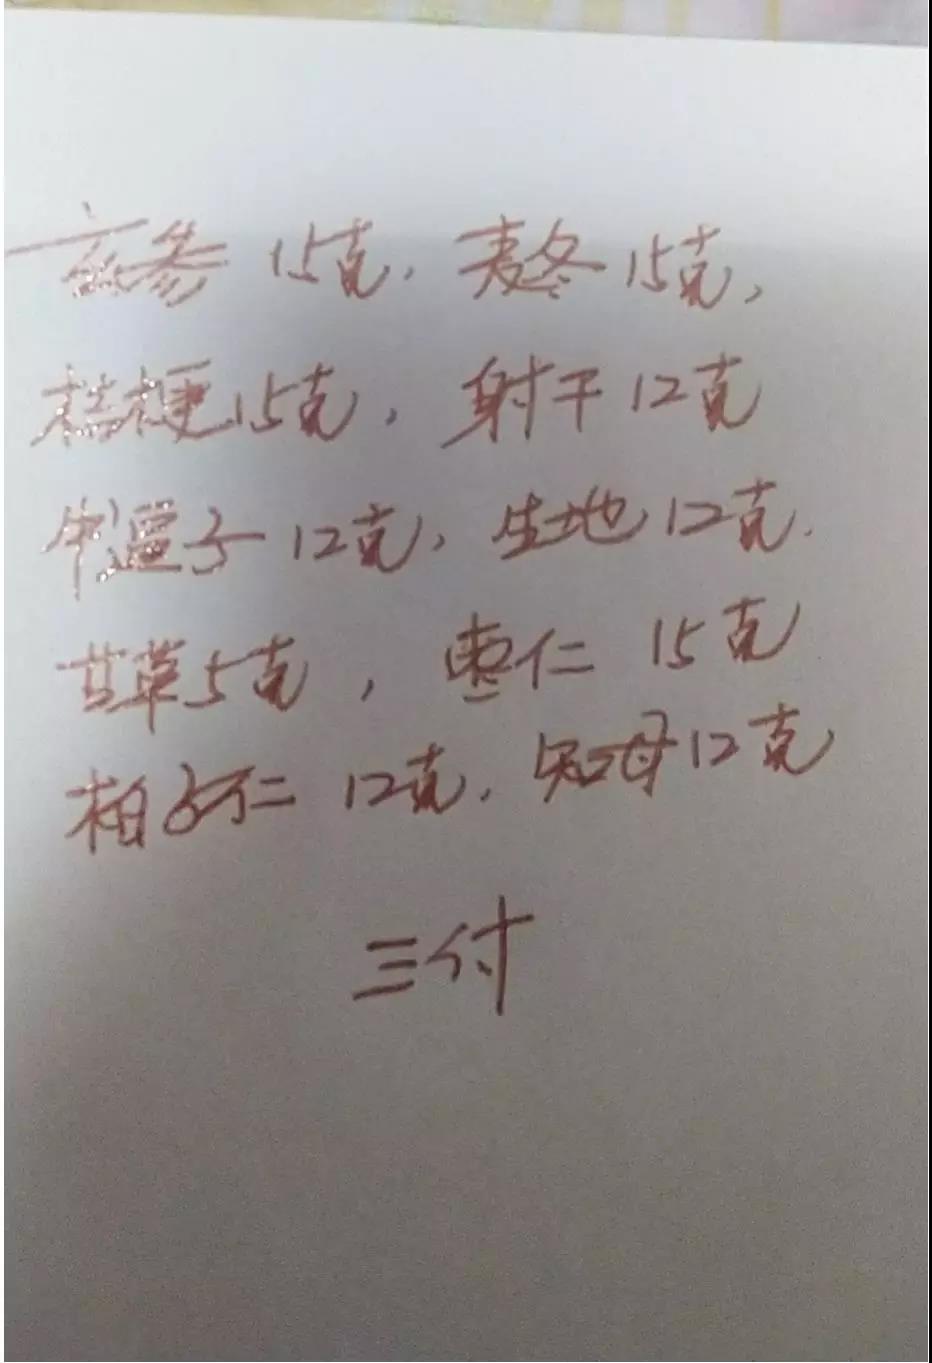 玄参 15克, 麦冬 15克,
桔梗 15克, 射干 12克
牛蒡子 12克, 生地 12克.
甘草 5克, 枣仁 15克
柏子仁 12克, 知母 12克
三付